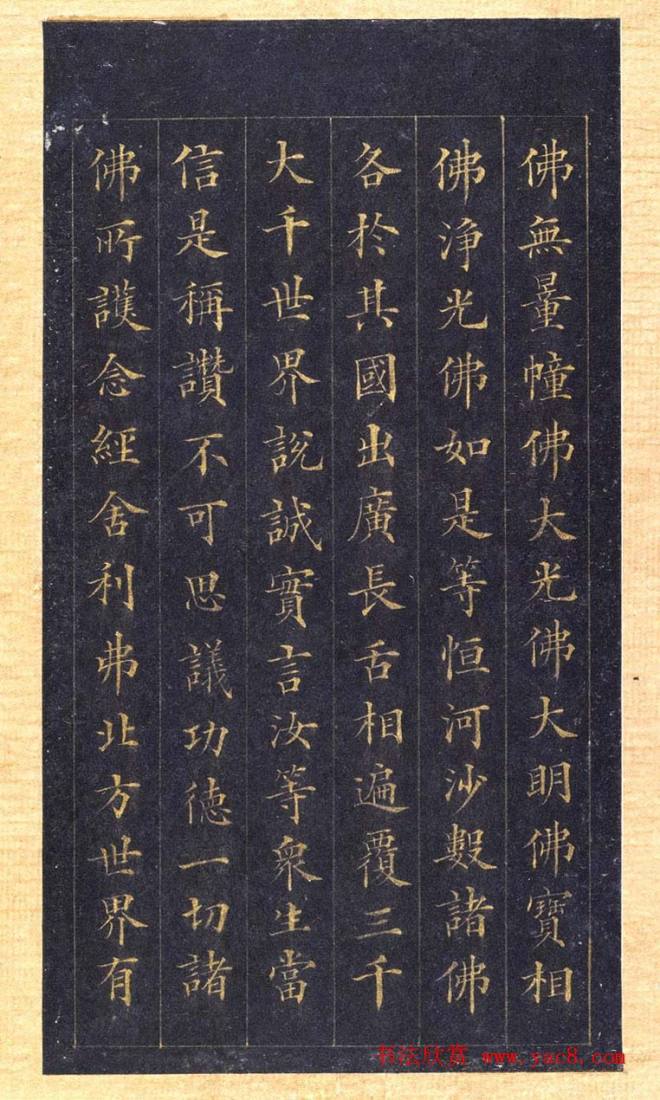 佛無量幢佛大光佛大明佛寶相
佛淨光佛如是等恒河沙數諸佛
各於其國出廣長舌相遍覆三千
大千世界說誠實言汝等衆生當
信是稱讚不可思議功德一切諸
佛所護念經舍利弗北方世界有
书法欣赏 www.yac8.com